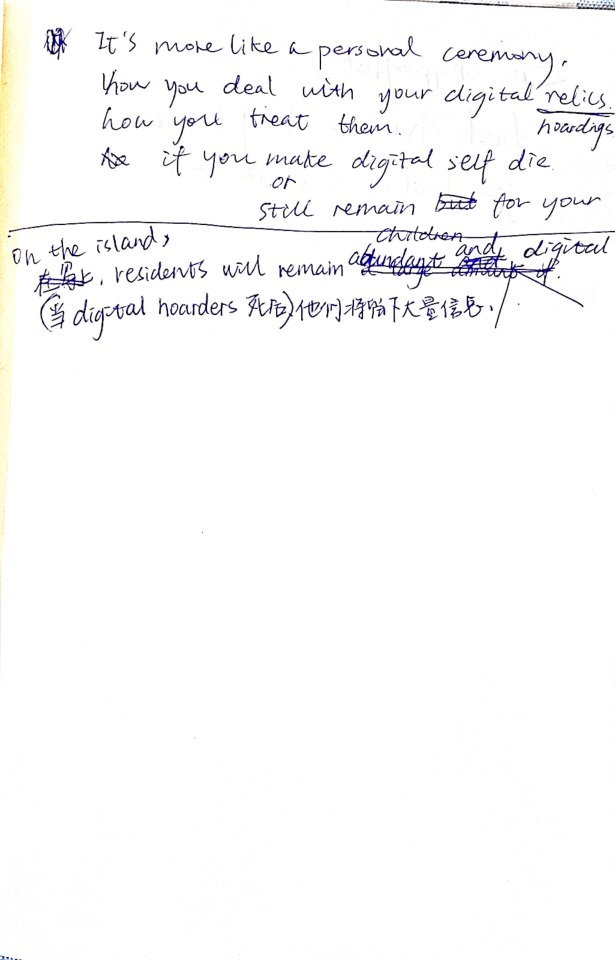 It's more like a personal ceremony.
how you deal with your digital relics.
how you treat them. hoardigs
if you make digital self die.
or
still remain but for your
children
on the island,
在岛上, residents will remain abundant and digital
a large amount of
(当 digital hoarders 死后)他们将留下大量信息.